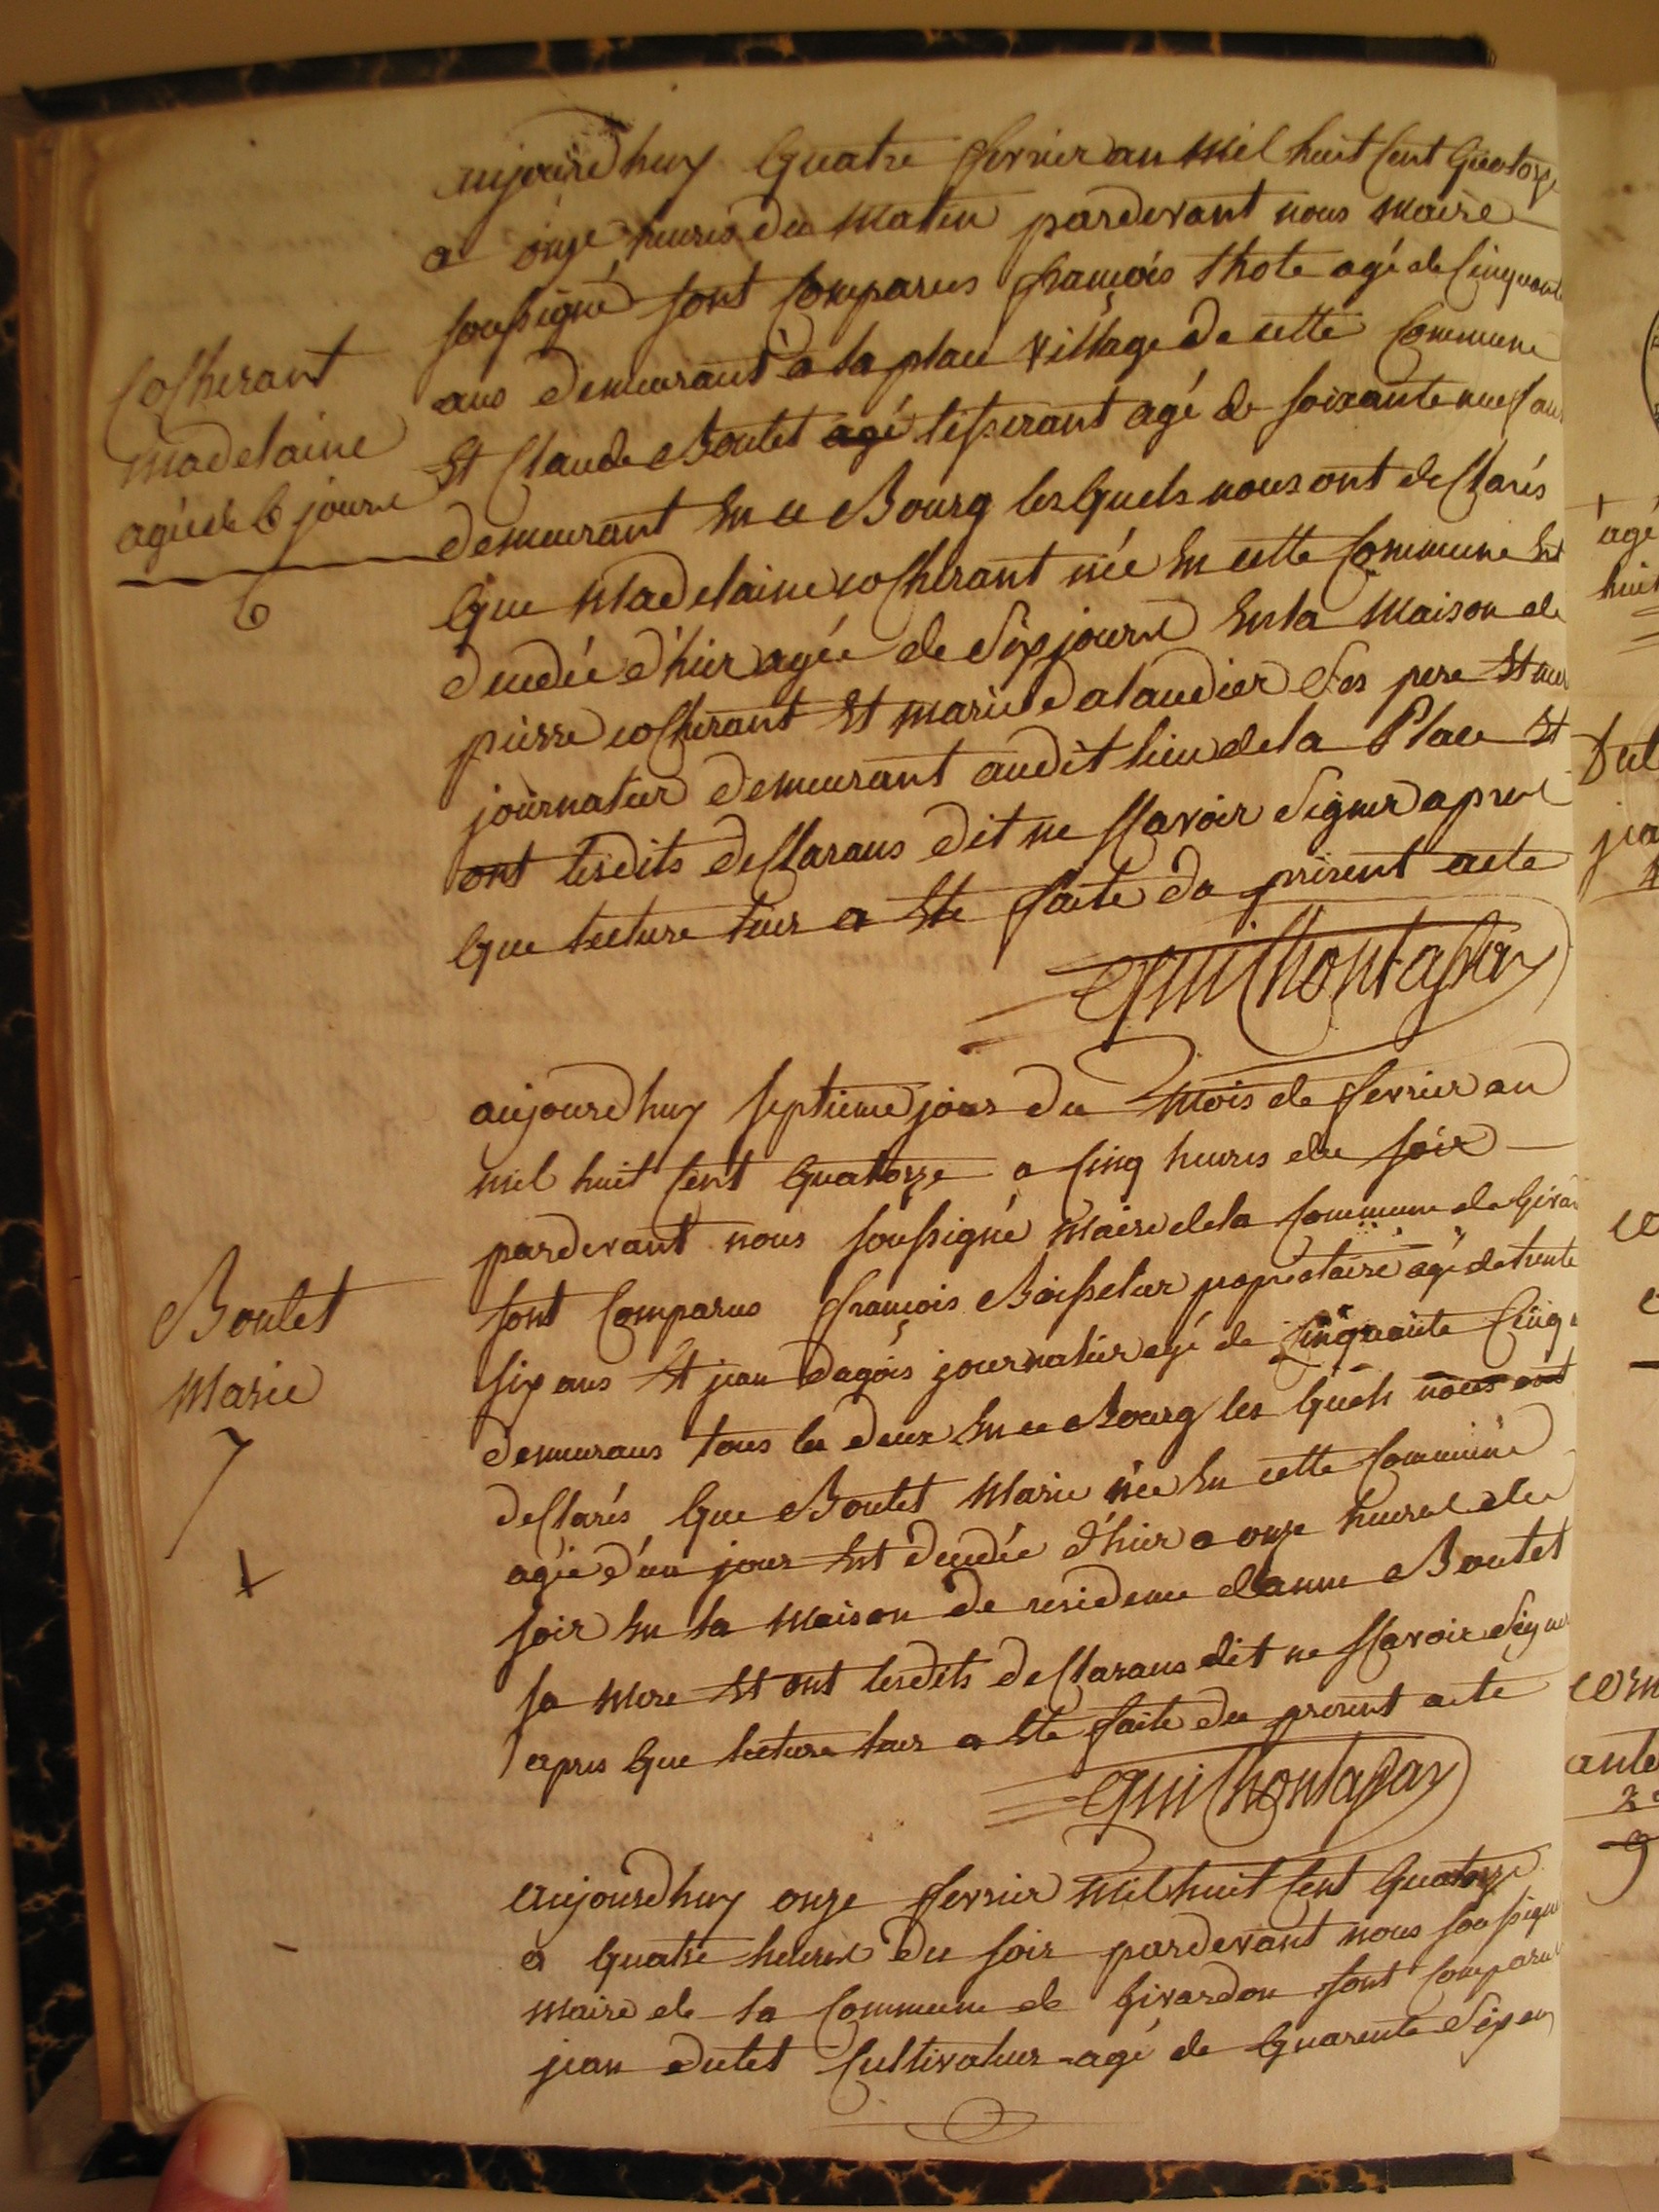 aujourdhuy quatre fevrier an mil huit cent quatorze
a onze heures du matin pardevant nous maire
soussigné sont comparus françois thote agé de cinquante
ans demeurant a la place village de cette commune
Et Claude Boutet agé tisserant agé de soixante neuf ans
demeurant En ce Bourg lesquels nous ont declarés
que Madelaine cosherant née En cette commune Est
decedée d'hier agée de six jours En la maison de
pierre cosherant Et marie dalaudier ses pere Et mere
journatier demeurant audit lieu de la Place Et
ont lesdits declarans dit ne scavoir signer apres
que lecture leur a Ete faite du present acte
Cosherant
Madelaine
agée de 6 jours
6
aujourdhuy septieme jour du Mois de fevrier an
mil huit cent quatorze a cinq heures du soir
pardevant nous soussigné Maire de la commune de Givar
sont comparus françois Boisseleur propriétaire agé de trente
six ans Et jean dagois journatier agé de cinquante cinq
demeurans tous les deux En ce Bourg les quels nous ont
declarés que Boutet Marie née En cette commune
agée d'un jour Est decedée d'hier a onze heures du
soir En la maison de residence danne Boutet
sa mere Et ont lesdits declarans dit ne scavoir signer
apres que lecture leur a Ete faite du present acte
Boutet
Marie
7
aujourdhuy onze fevrier mil huit cent quatorze
a quatre heures du soir pardevant nous soussigné
maire de la commune de Givardon sont comparus
jean dutet cultivateur agé de quarente six ans
agé
huit